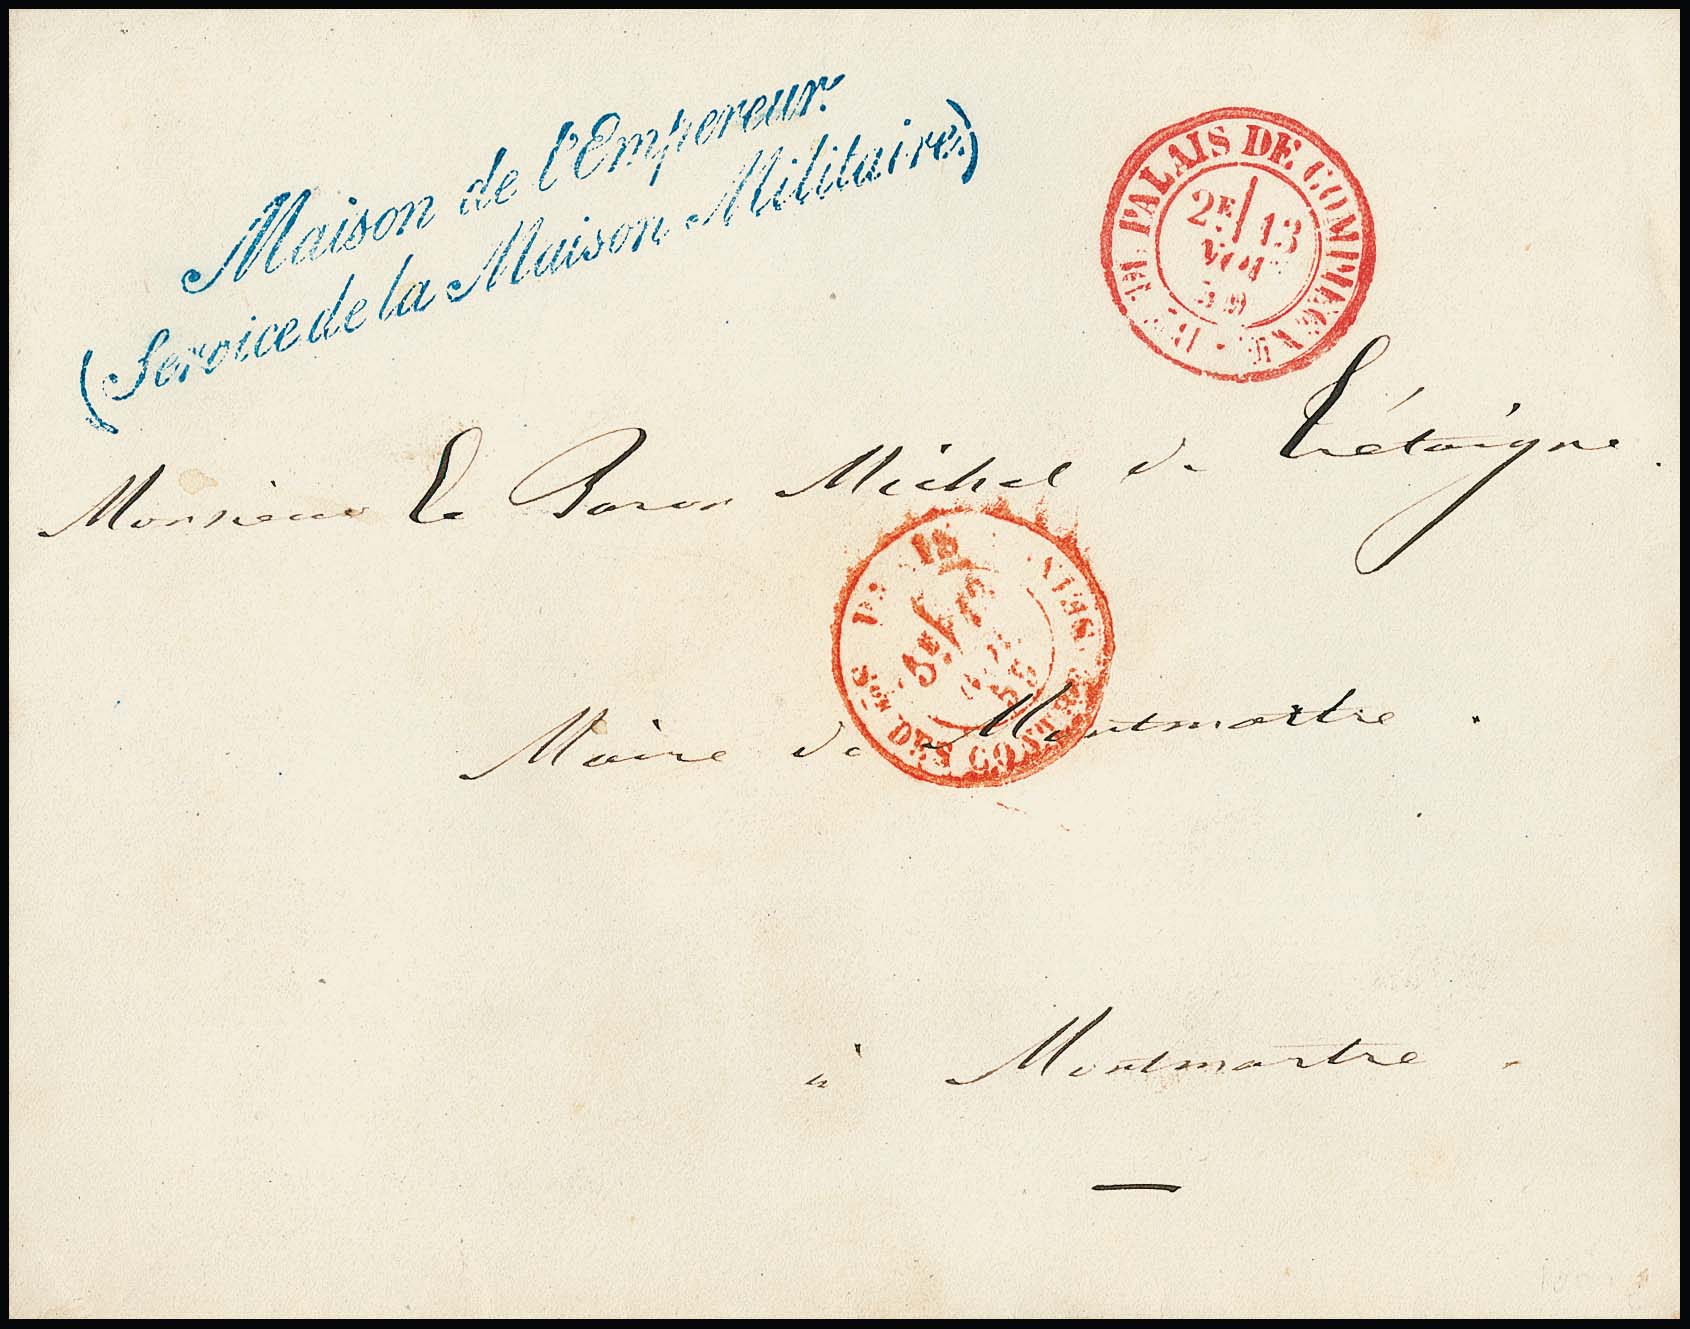 Maison de l'Empereur.
(Service de la Maison Militaire.)
PALAIS DE COMPIEGNE
2E/13
59
Monsieur Le Baron Michel de Trétaigne.
DES CON
5E/
Maire de Montmartre.
à Montmartre